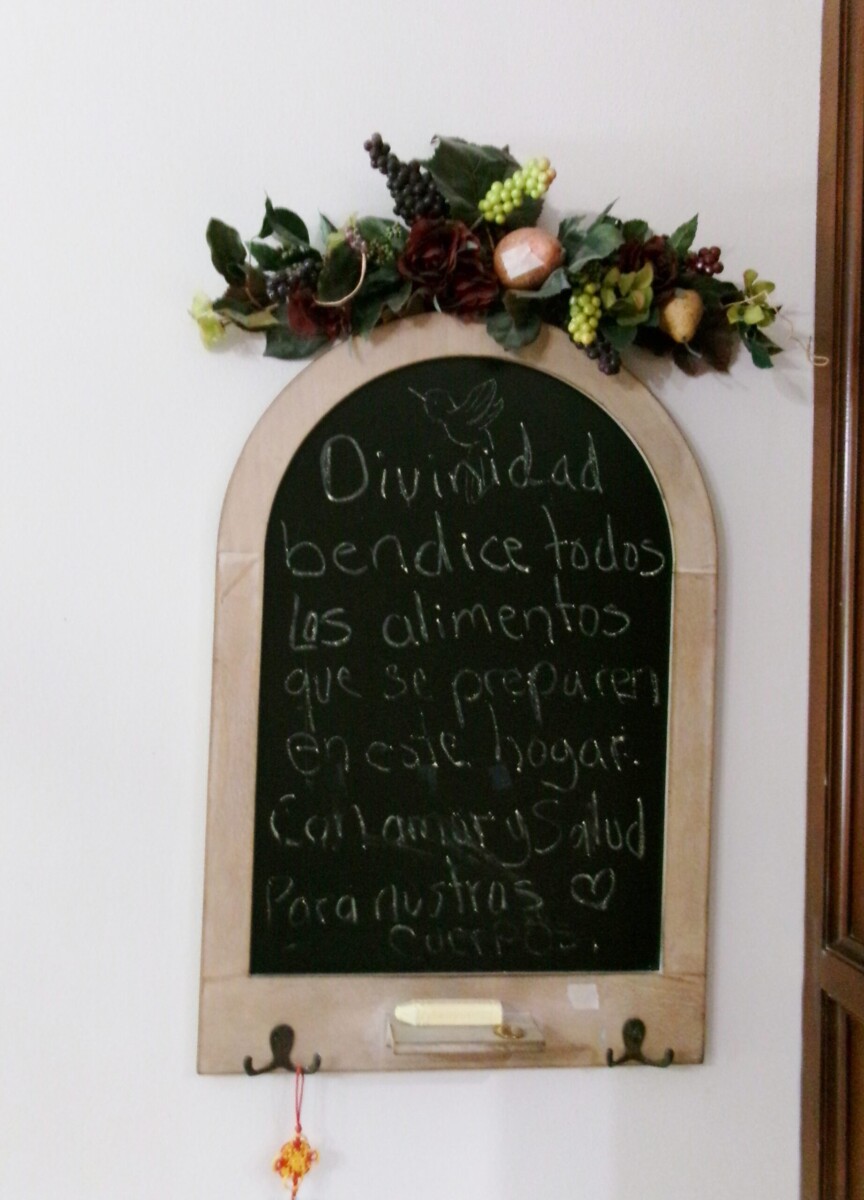 Divinidad
bendice todos
Los alimentos
que se preparen
en este hogar.
Con amor y Salud
Para nustros
cuerpos.